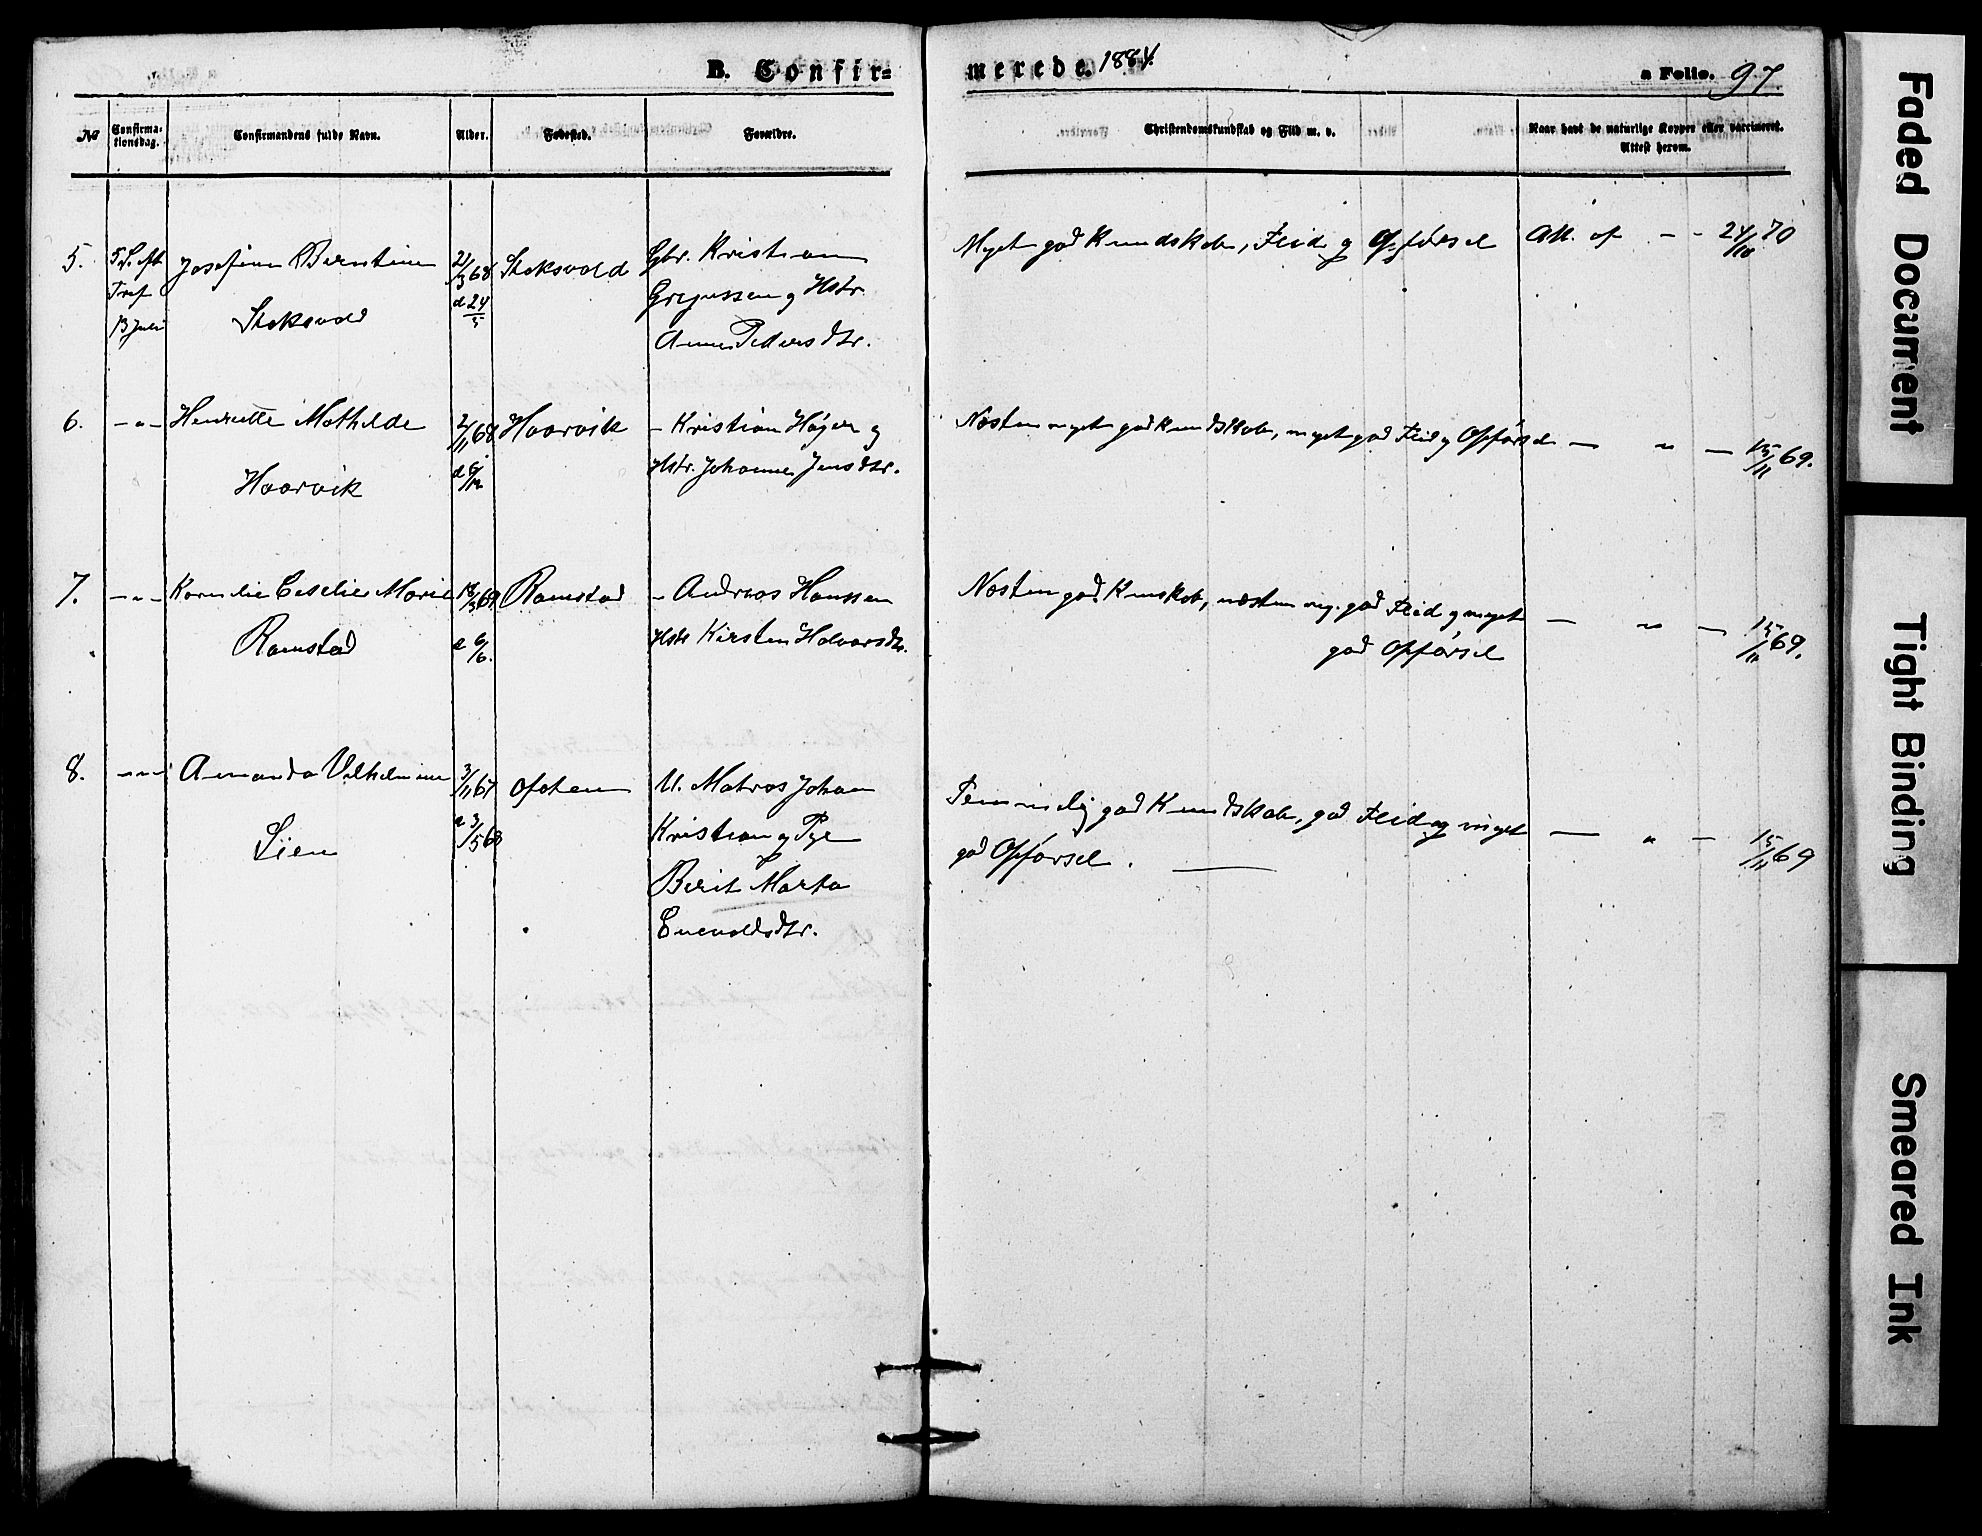 B. Confir=
merede. 1884.
a Folio. 97.
No
Confirma-
tionsdag.
Confirmandens fulde Navn.
Alder.
Fødested.
Forældre.
Christendomskundskab og Flid m. v.
Naar havt de naturlige Kopper eller vaccineret.
Attest herom.
5. 5 S. eft. Josefine Berntine 21/3 68 Stoksvold Gbr. Kristian Meget god Kundskab, Flid og Opførsel Att. af - - 24/10 70
Tref d 24/5 Gregussen og Hstr.
13 Juli Stoksvold Anne Pedersdtr.
6. - " - Henriette Mathilde 2/11 68 Haarvik - Kristian Højer og Næsten meget god Kundskab, meget god Flid og Opførsel — " — 15/11 69.
Haarvik d 6/12 Hstr. Johanne Jensdtr.
7. - " - Kornelie Ceselie Marie 18/3 69 Ramstad - Andreas Hanssen Næsten god Kunskab, næsten meg. god Flid og meget — " — 15/11 69.
Ramstad d 6/6. Hstr Kirsten Halvorsdtr. god Opførsel
8. - " - Amanda Vilhelmine 3/11 67 Ofoten U. Matros Johan Temmelig god Kundskab, god Flid og meget — " — 15/11 69
Lien d 3/5 68 Kristian og Pige god Opførsel.
Berit Marta
Enevoldsdtr.
Faded Document
Tight Binding
Smeared Ink